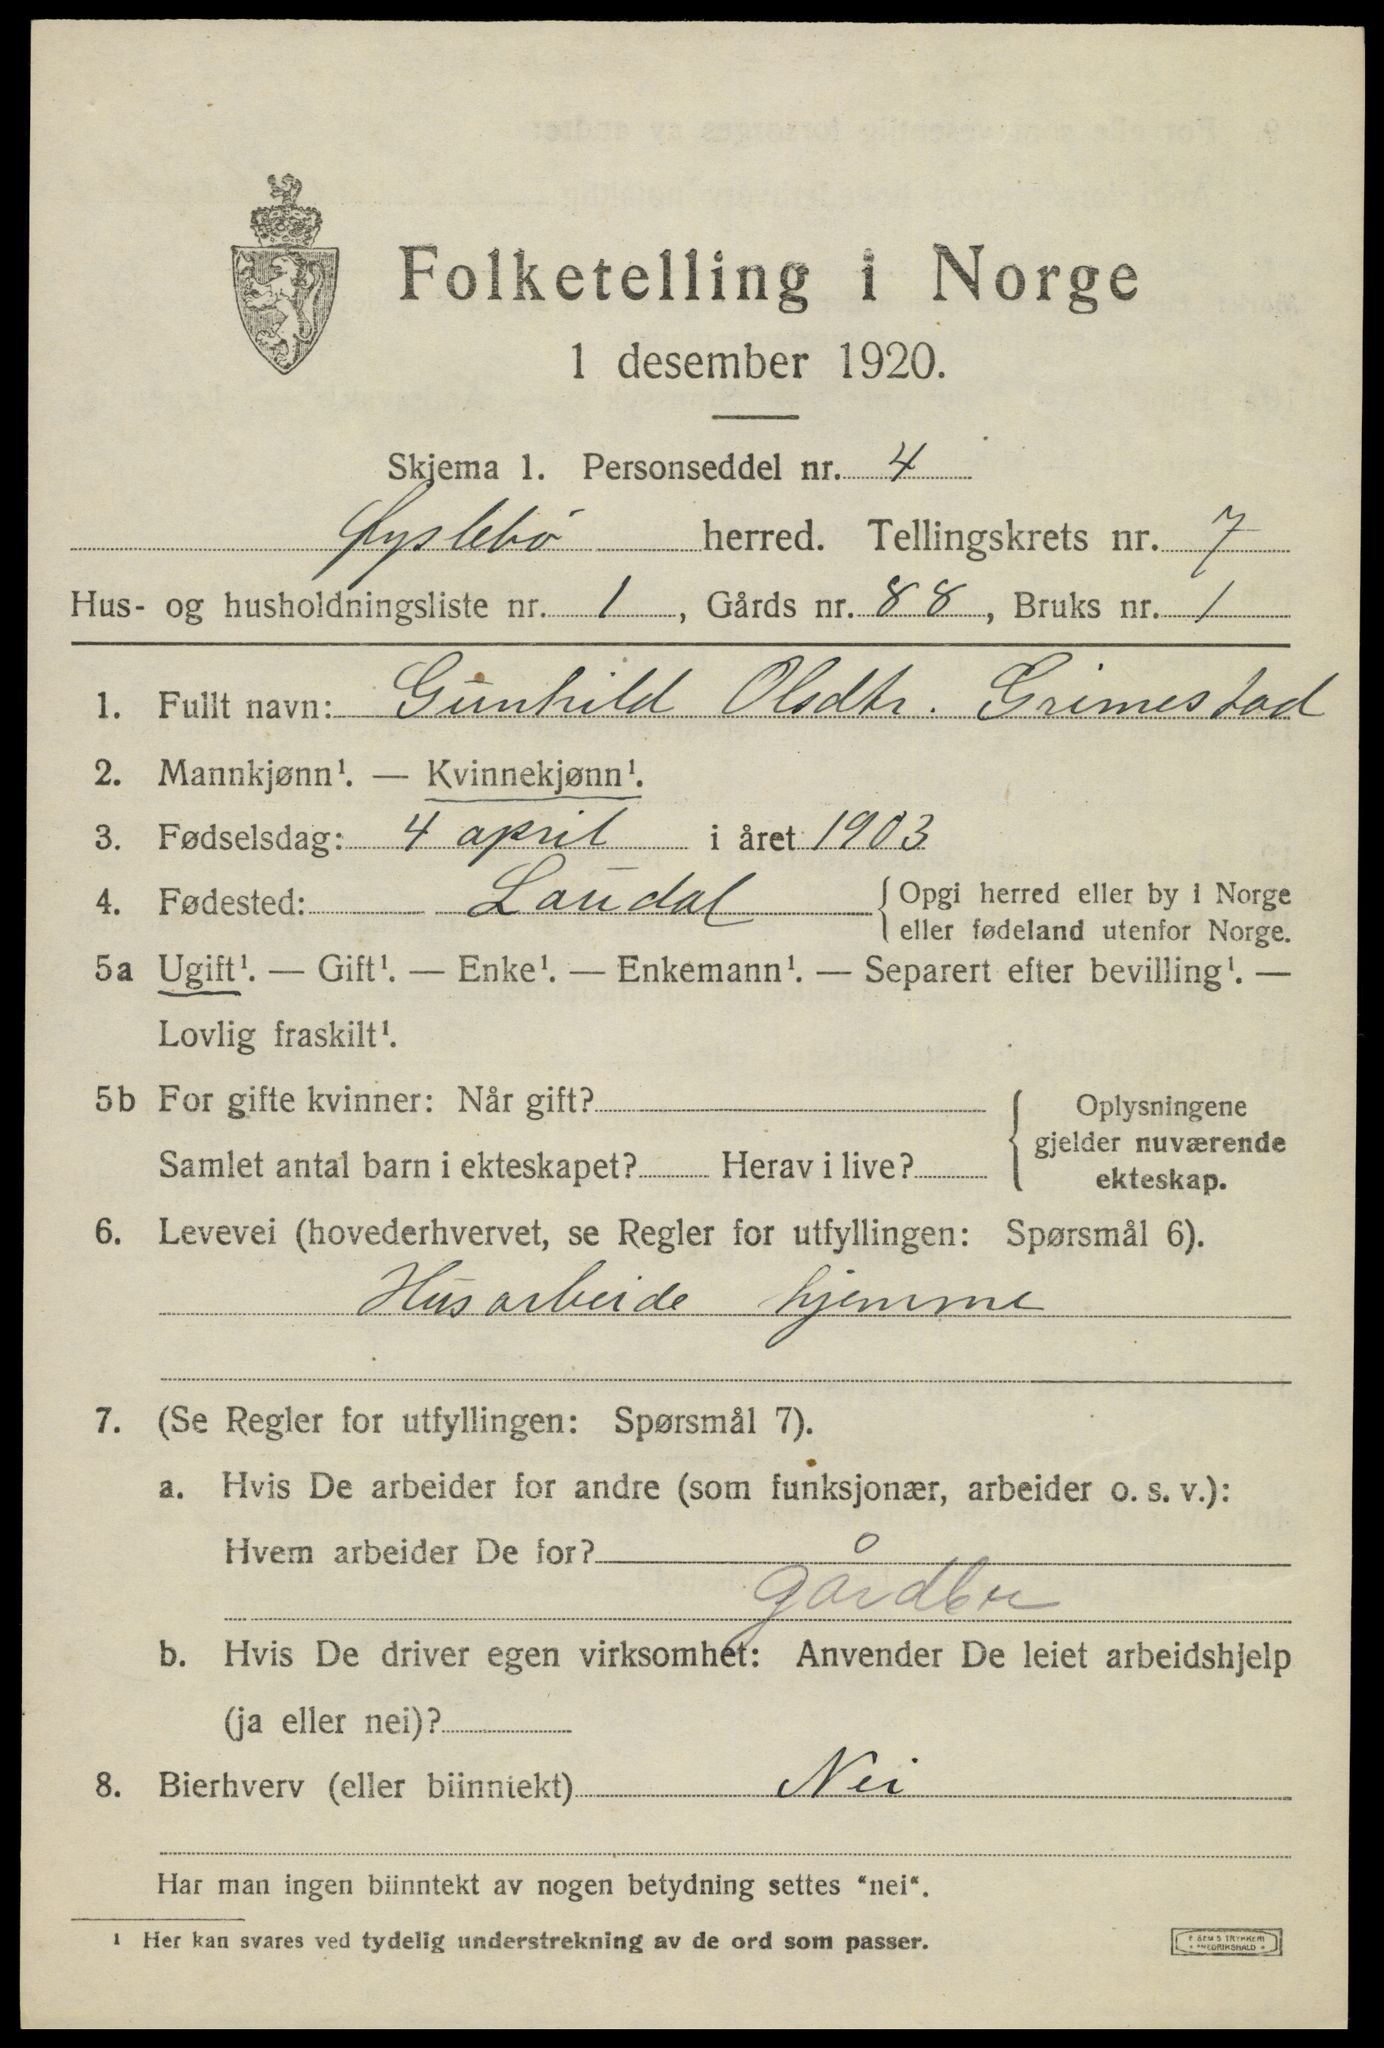 Folketelling i Norge
1 desember 1920.
Skjema 1. Personseddel nr. 4
Øyslebö herred. Tellingskrets nr. 7
Hus- og husholdningsliste nr. 1, Gårds nr. 88, Bruks nr. 1
1. Fullt navn: Gunhild Olsdtr. Grimestad
2. Mannkjønn¹. — Kvinnekjønn¹.
3. Fødselsdag: 4 april i året 1903
4. Fødested: Laudal {Opgi herred eller by i Norge
eller fødeland utenfor Norge.
5a Ugift¹. — Gift¹. — Enke¹. — Enkemann¹. — Separert efter bevilling¹. —
Lovlig fraskilt¹.
5b For gifte kvinner: Når gift?
Samlet antal barn i ekteskapet? Herav i live?
Oplysningene
gjelder nuværende
ekteskap.
6. Levevei (hovederhvervet, se Regler for utfyllingen: Spørsmål 6).
Husarbeide hjemme
7. (Se Regler for utfyllingen: Spørsmål 7).
a. Hvis De arbeider for andre (som funksjonær, arbeider o. s. v.):
Hvem arbeider De for?
b. Hvis De driver egen virksomhet: Anvender De leiet arbeidshjelp
(ja eller nei)?
8. Bierhverv (eller biinntekt) Nei
Har man ingen biinntekt av nogen betydning settes "nei".
¹ Her kan svares ved tydelig understrekning av de ord som passer.